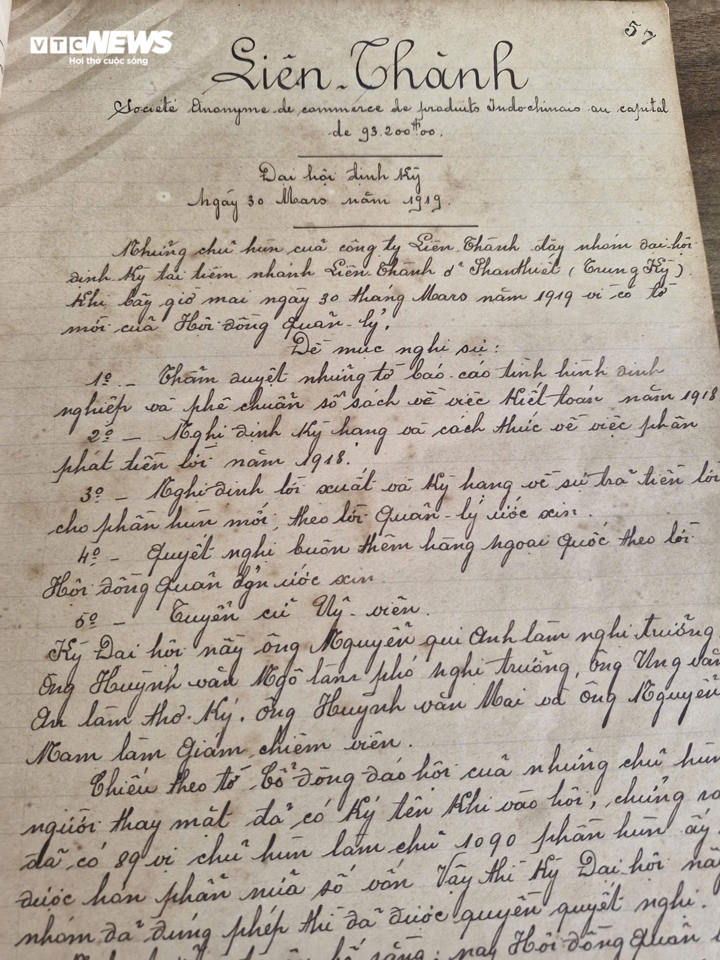 VTC NEWS
Hơi thở cuộc sống
57
Liên-Thành
Société Anonyme de commerce de produits Indochinois au capital
de 93.200$00.
Đai hội định Kỳ
Ngày 30 Mars năm 1919.
Những chữ hùn cuả công ty Liên Thành đây nhóm đai hội
định Kỳ tai tiệm nhánh Liên Thành ở Phanthiêt (Trung Kỳ)
Khi bảy giờ mai ngày 30 tháng Mars năm 1919 vì có tờ
mời cuả Hội đồng Quản-lý.
Đề mục nghi sự:
1º_ Thẩm duyệt những tờ báo cáo tình hình dinh
nghiệp và phê chuẩn sổ sách về việc Kiết toán năm 1918
2º_ Nghi đinh Kỳ hang và cách thức về việc phân
phát tiền lời năm 1918.
3º_ Nghi đinh lời xuất và Kỳ hang về sự trả tiền lời
cho phần hùn mới, theo lời Quản-lý ước xin.
4º_ Quyết nghi buôn thêm hàng ngoại Quốc theo lời
Hội đồng Quản ước xin
5º_ Tuyển cử Uỷ-viên.
Kỳ Đai hội nầy ông Nguyễn qui Anh làm nghi trưởng
ông Huỳnh văn Ngô làm phó nghi trưởng, ông Ung văn
An làm thơ-Ký. ông Huỳnh văn Mai và ông Nguyễn
Nam làm Giám chiêm viên.
Chiếu theo tờ bổ đồng đáo hội cuả những chữ hùn
người thay mặt đã có Ký tên Khi vào hội, chứng ra
đã có 89 vị chữ hùn làm chữ 1090 phần hùn ấy
được hơn phần nửa số vốn Vậy thì Kỳ Đai hội nầy
nhóm đã đúng phép thì đã được quyền quyết nghi.
rằng: nay Hội đồng Quản